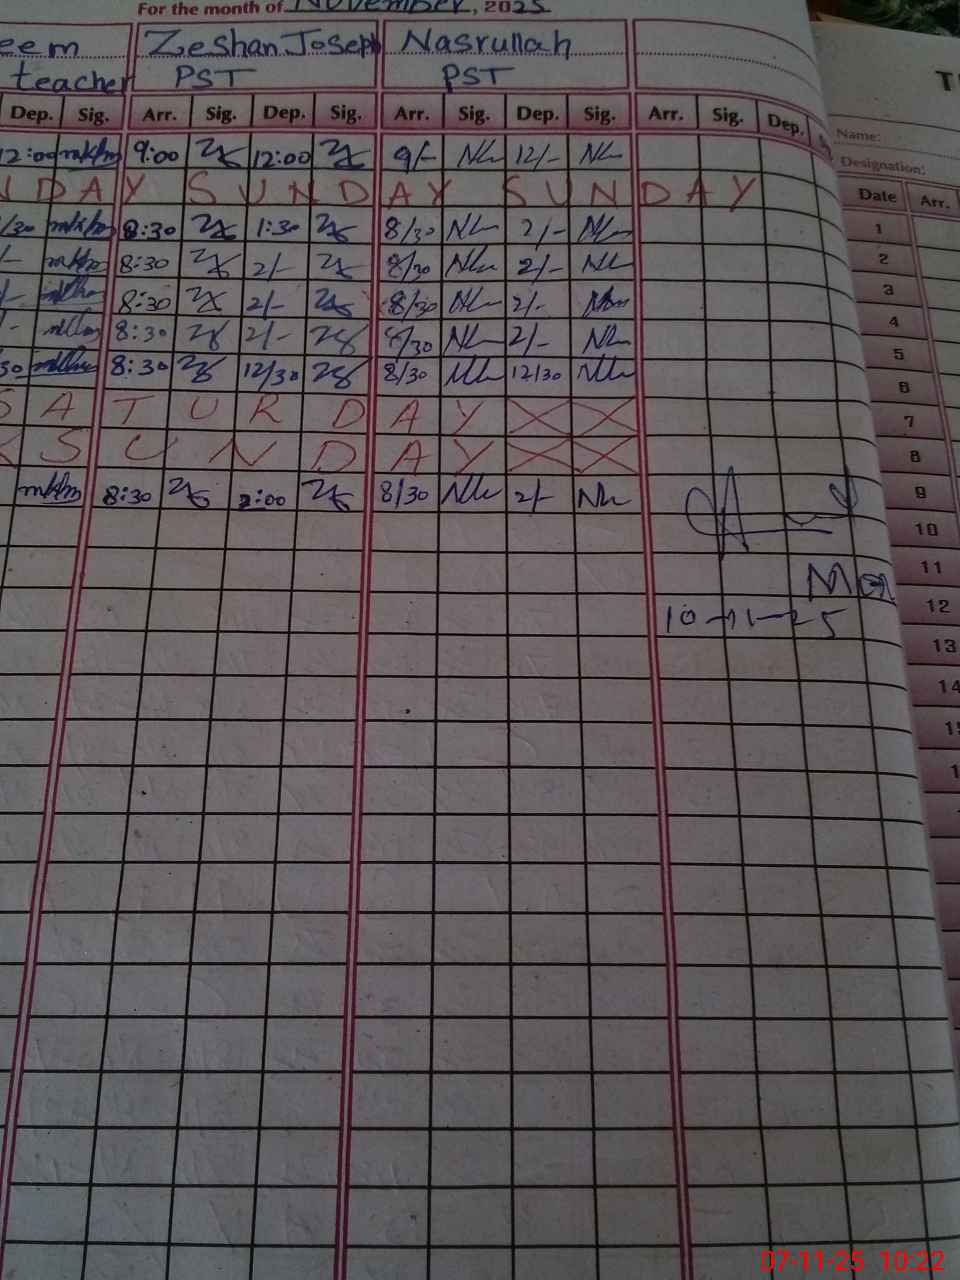 For the month of November, 2025
eem Zeshan Joseph Nasrullah
teacher PST PST
Dep. Sig. Arr. Sig. Dep. Sig. Arr. Sig. Dep. Sig. Arr. Sig. Dep.
12:00 9:00 12:00 9/- 12/-
N D A Y S U N D A Y S U N D A Y
/30 8:30 1:30 8/30 2/-
/- 8:30 2/- 8/30 2/-
/- 8:30 2/- 8/30 2/-
/- 8:30 2/- 8/30 2/-
30 8:30 12/30 8/30 12/30
S A T U R D A Y
S U N D A Y
8:30 2:00 8/30 2/-
10-11-25
Name:
Designation:
Date Arr.
1
2
3
4
5
6
7
8
9
10
11
12
13
14
07-11-25 10:22